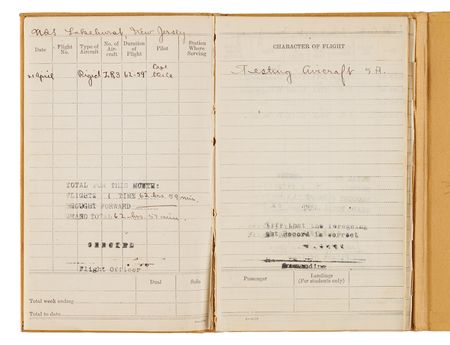 NAS Lakehurst, New Jersey
Date
Flight No.
Type of Aircraft
No. of Aircraft
Duration of Flight
Pilot
Station Where Serving
April Rigid ZR3 62-59 Capt
TOTAL FOR THIS MONTH:
FLIGHTS 1 TIME 62 hrs. 59 min.
BROUGHT FORWARD
GRAND TOTAL 62-hrs. 59 min.
Flight Officer
Dual
Solo
Total week ending
Total to date
CHARACTER OF FLIGHT
Testing Aircraft
that the foregoing
Record is correct
Passenger
Landings
(For students only)